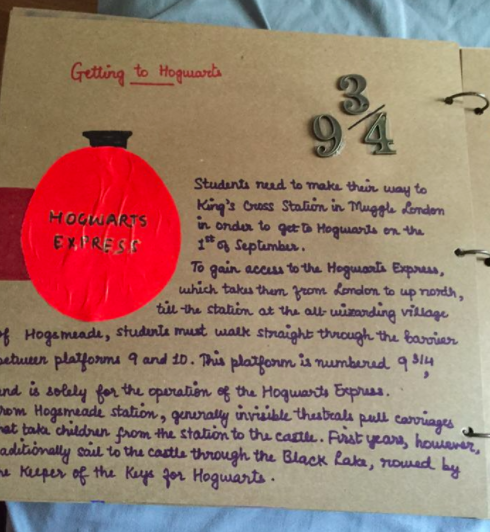 Getting to Hogwarts
9 3/4
HOGWARTS
EXPRESS
Students need to make their way to
King's Cross Station in Muggle London
in order to get to Hogwarts on the
1st of September.
To gain access to the Hogwarts Express,
which takes them from London to up north,
till the station at the all-wizarding village
of Hogsmeade, students must walk straight through the barrier
between platforms 9 and 10. This platform is numbered 9 3/4,
and is solely for the operation of the Hogwarts Express.
rom Hogsmeade station, generally invisible thestrals pull carriages
hat take children from the station to the castle. First years, however,
raditionally sail to the castle through the Black Lake, rowed by
he Keeper of the Keys for Hogwarts.